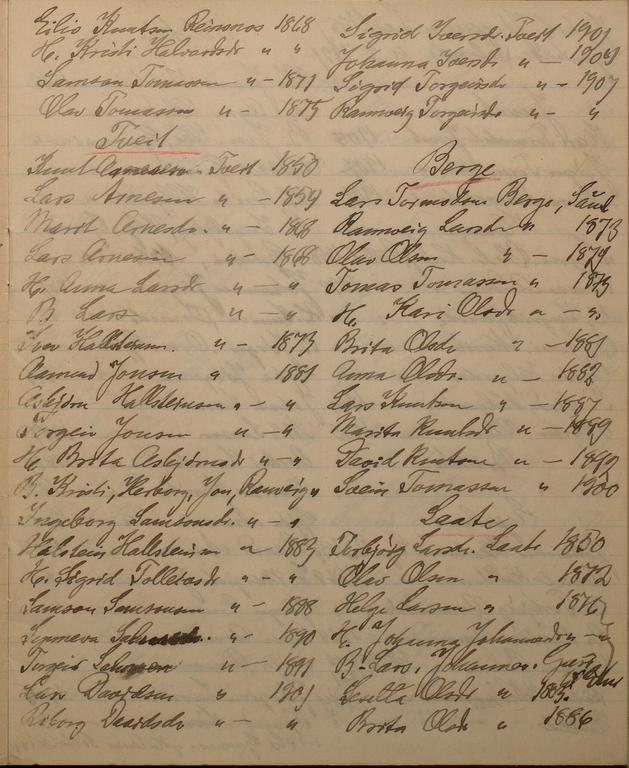 Eilio Knutsen Reinsnos 1868
H. Kristi Halvardsdr " "
Samson Tomassen " - 1871
Olav Tomassen " - 1875
Tveit
Knut Arnesen Tveit 1850
Lars Arnesen " - 1859
Marit Arnesdr. " - 1868
Lars Arnesen " - 1868
H. Anna Larsdr " - "
B. Lars " - "
Iver Hallsteinsn. " - 1873
Aamund Jonsen " 1881
Asbjørn Hallsteinsen " - "
Torgeir Jonsen " - "
H. Brita Asbjørnsdr " - "
B. Kristi, Herborg, Jon, Ramveig "
Ingeborg Samsonsdr. " - "
Halstein Hallsteinsn " 1883
H. Sigrid Tolleivsdr " - "
Samson Samsonsen " - 1888
Synneva " - 1890
Torgeir " - 1891
Lars Davidsen " 1901
Riborg Davidsdr " - "
Sigrid Iversdr. Tveit 1901
Johanna Iversdr " - 1904
Sigrid Torgeirsdr " - 1907
Ramveig Torgeirsdr " - "
Berge
Lars Tormodsen Berge,
Ramveig Larsdr " 1873
Olav Olsen " - 1879
Tomas Tomassen " 1875
H. Kari Olsdr " - "
Brita Olsdr " - 1881
Anna Olsdr. " - 1882
Lars Knutsen " - 1887
Marita Knutsdr " - 1889
David Knutsen " - 1892
Svein Tomassen " 1900
Laate
Torbjørg Larsdr. Laate 1850
Olav Olsen " 1872
Helge Larsen " 1876
H. Johanna Johannesdr " - "
B. Lars, Johannes, Guro
Olsdr " 1885
Brita Olsdr " 1886